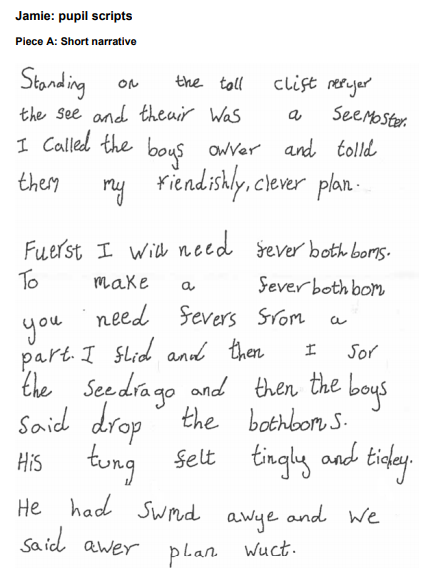 Jamie: pupil scripts
Piece A: Short narrative
Standing on the toll clift neryer
the see and theuir was a seemoster.
I called the boys owver and tolld
them my fiendishly, clever plan.
Fuerst I will need fever both boms.
To make a feverbothbom
you need fevers from a
part. I flid and then I sor
the seedrago and then the boys
said drop the bothboms.
His tung felt tingly and tickey.
He had swmd awye and we
said awer plan wuct.